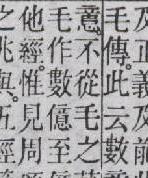 毛傳。此云數
意。不從毛之
毛作數億至
他經。惟見周
之兆與。五經